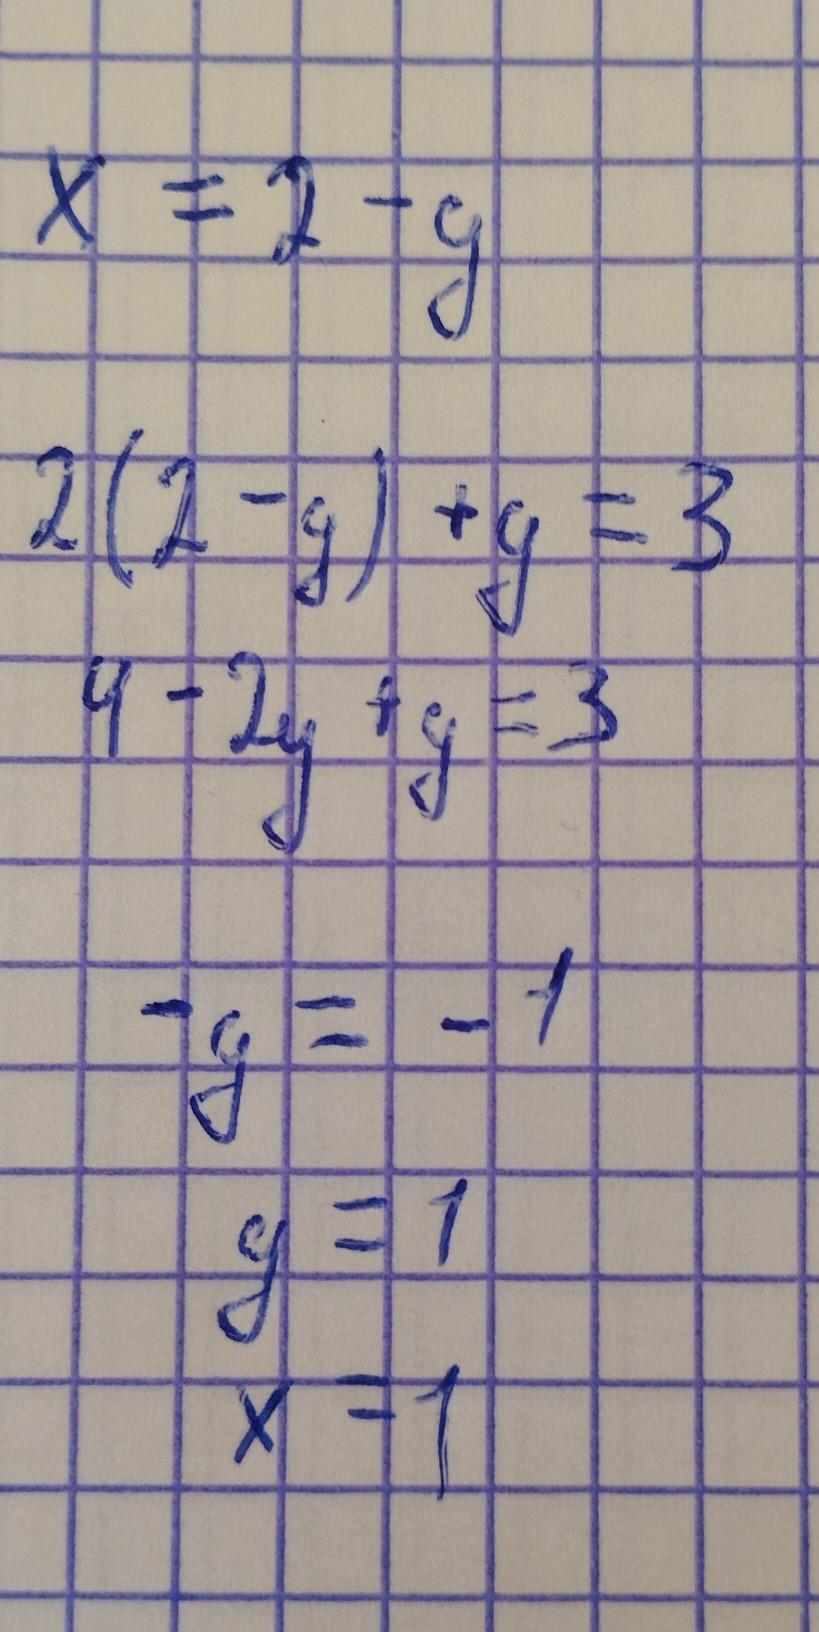 x = 2 - y
2(2 - y) + y = 3
4 - 2y + y = 3
-y = -1
y = 1
x = 1